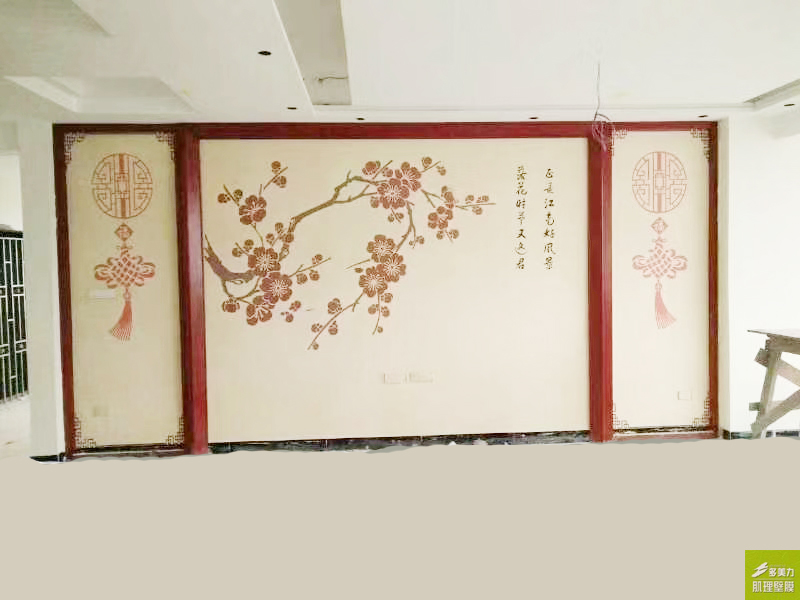 正是江南好风景
落花时节又逢君
多美力
肌理壁膜